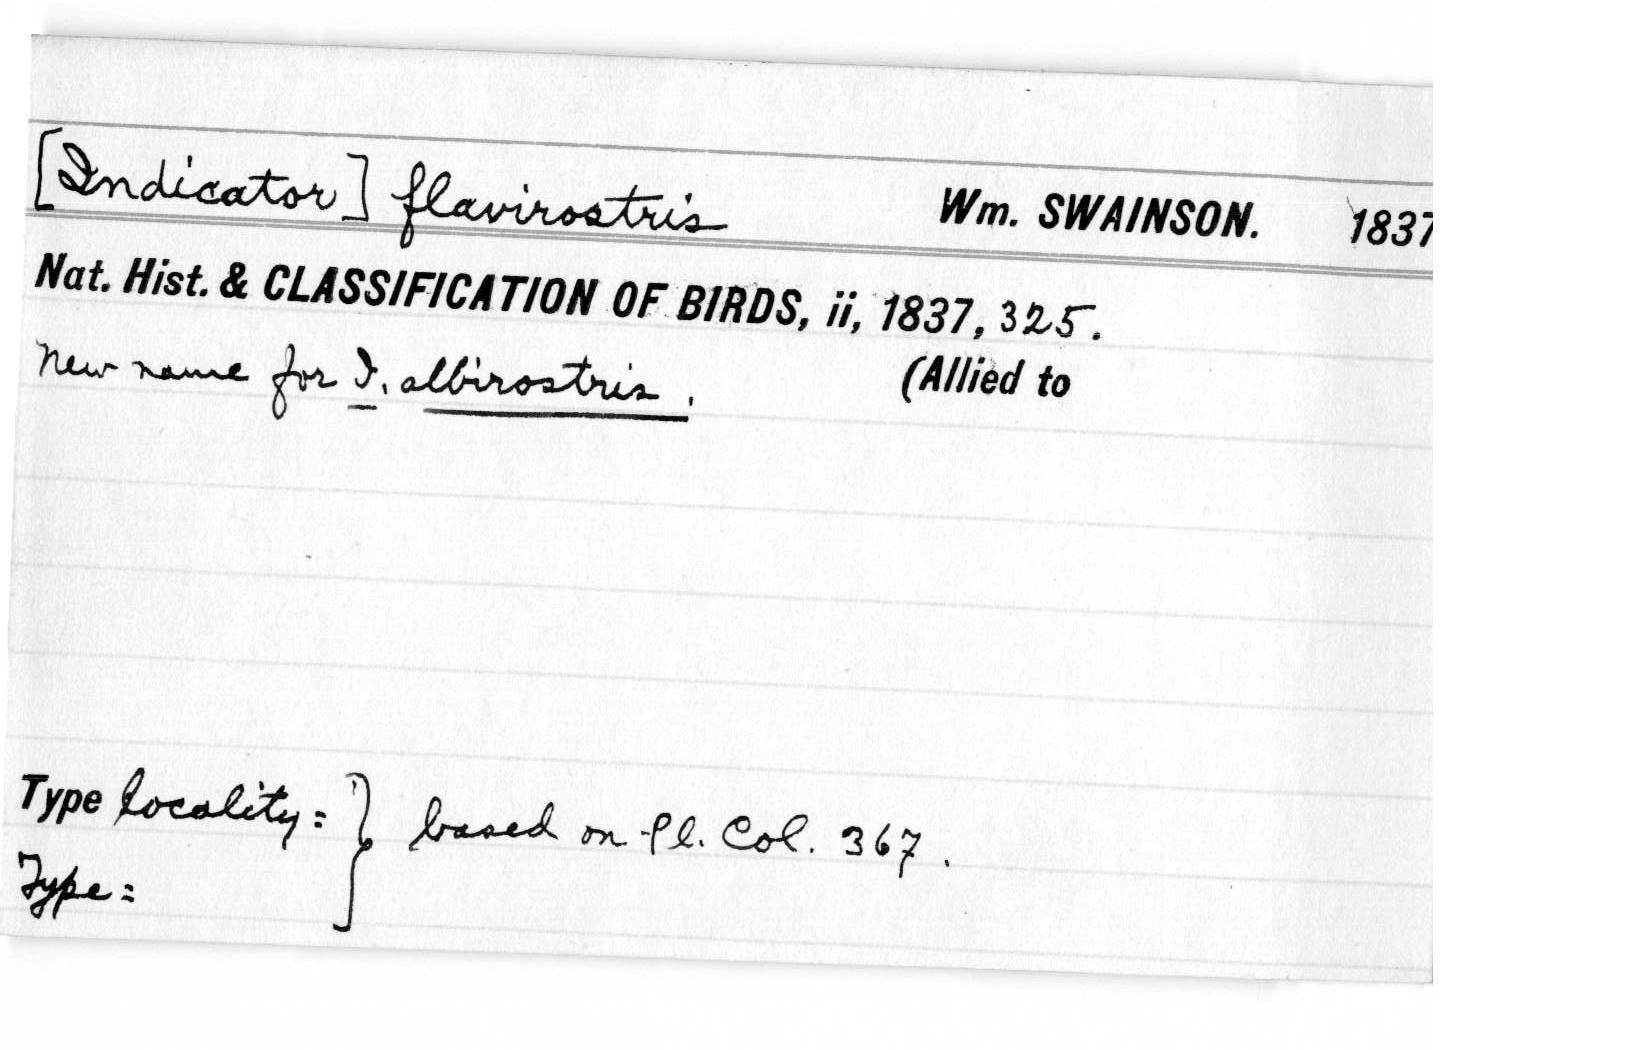 [Indicator] flavirostris Wm. SWAINSON. 1837
Nat. Hist. & CLASSIFICATION OF BIRDS, ii, 1837, 325.
New name for I. albirostris. (Allied to
Type locality = } based on Pl. Col. 367.
Type =